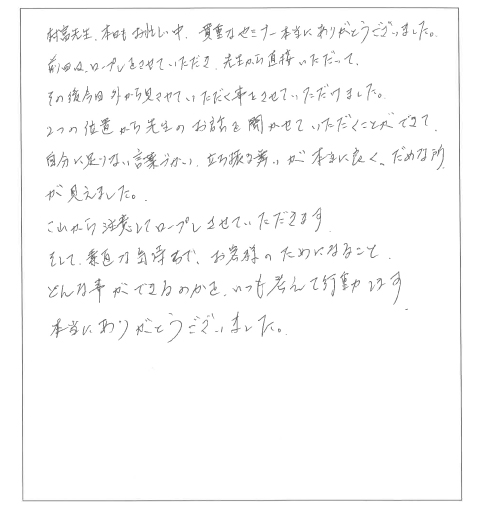 村冨先生、本日もお忙しい中、貴重なセミナー本当にありがとうございました。
前回は、ロープレをさせていただき、先生から直接いただいて、
その後今日外から見させていただく事をさせていただけました。
2つの位置から先生のお話を聞かせていただくことができて、
自分に足りない言葉づかい、立ち振る舞いが本当に良く、だめな所
が見えました。
これから注意してロープレさせていただきます
そして、素直な気持ちで、お客様のためになること、
どんな事ができるのかを、いつも考えて行動します。
本当にありがとうございました。